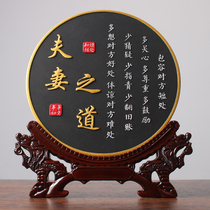 夫妻
之道
多想对方好处体谅对方难处
少猜疑少指责少翻旧账
多关心多尊重多鼓励
包容对方短处